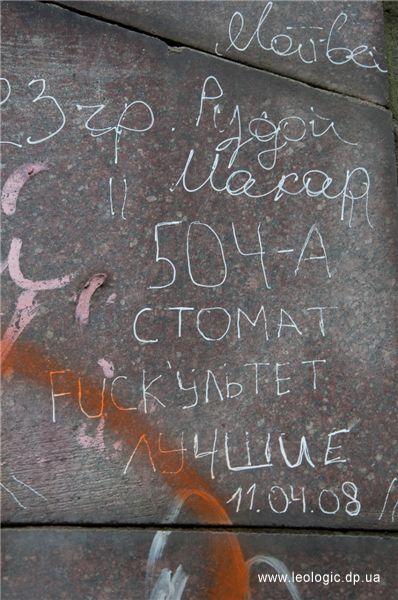 Мотвей
23 гр. Рудой
11 Макар
504-А
СТОМАТ
FUCK'УЛЬТЕТ
ЛУЧШИЕ
11.04.08
www.leologic.dp.ua